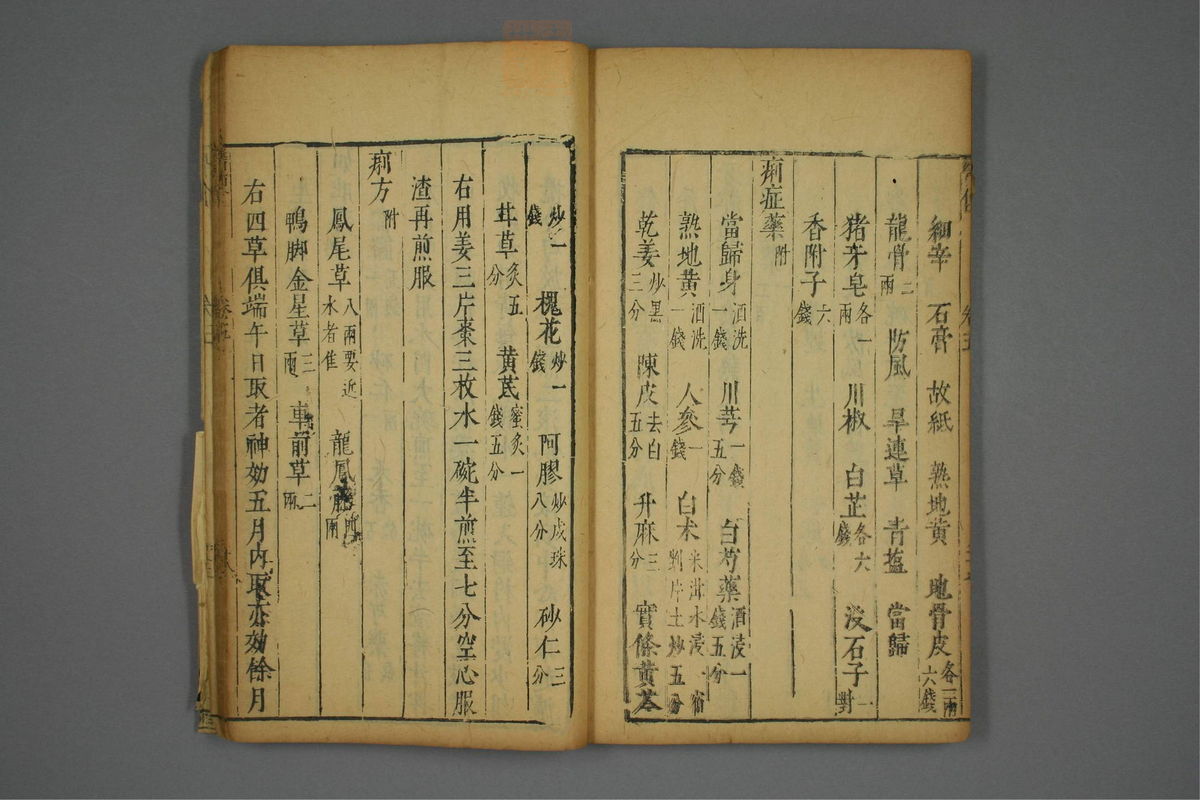 細辛 石膏 故紙 熟地黃 地骨皮各一兩六錢
龍骨二兩 防風 旱連草 青塩 當歸
猪牙皂各一兩 川椒 白芷各六錢 沒石子一對
香附子六錢
痢症藥附
當歸身酒洗一錢 川芎一錢五分 白芍藥酒浸一錢五分
熟地黃酒洗一錢 人參一錢 白术米泔水浸一宿剉片土炒五分
乾姜炒黑三分 陳皮去白五分 升麻三分 實條黃芩
炒一錢 槐花炒一錢 阿膠炒成珠八分 砂仁三分
甘草炙五分 黃芪蜜炙一錢五分
右用姜三片棗三枚水一碗半煎至七分空心服
渣再煎服
痢方附
鳳尾草八兩要近水者隹 龍鳳
鴨脚金星草三兩 車前草二兩
右四草俱端午日取者神効五月內取亦効餘月